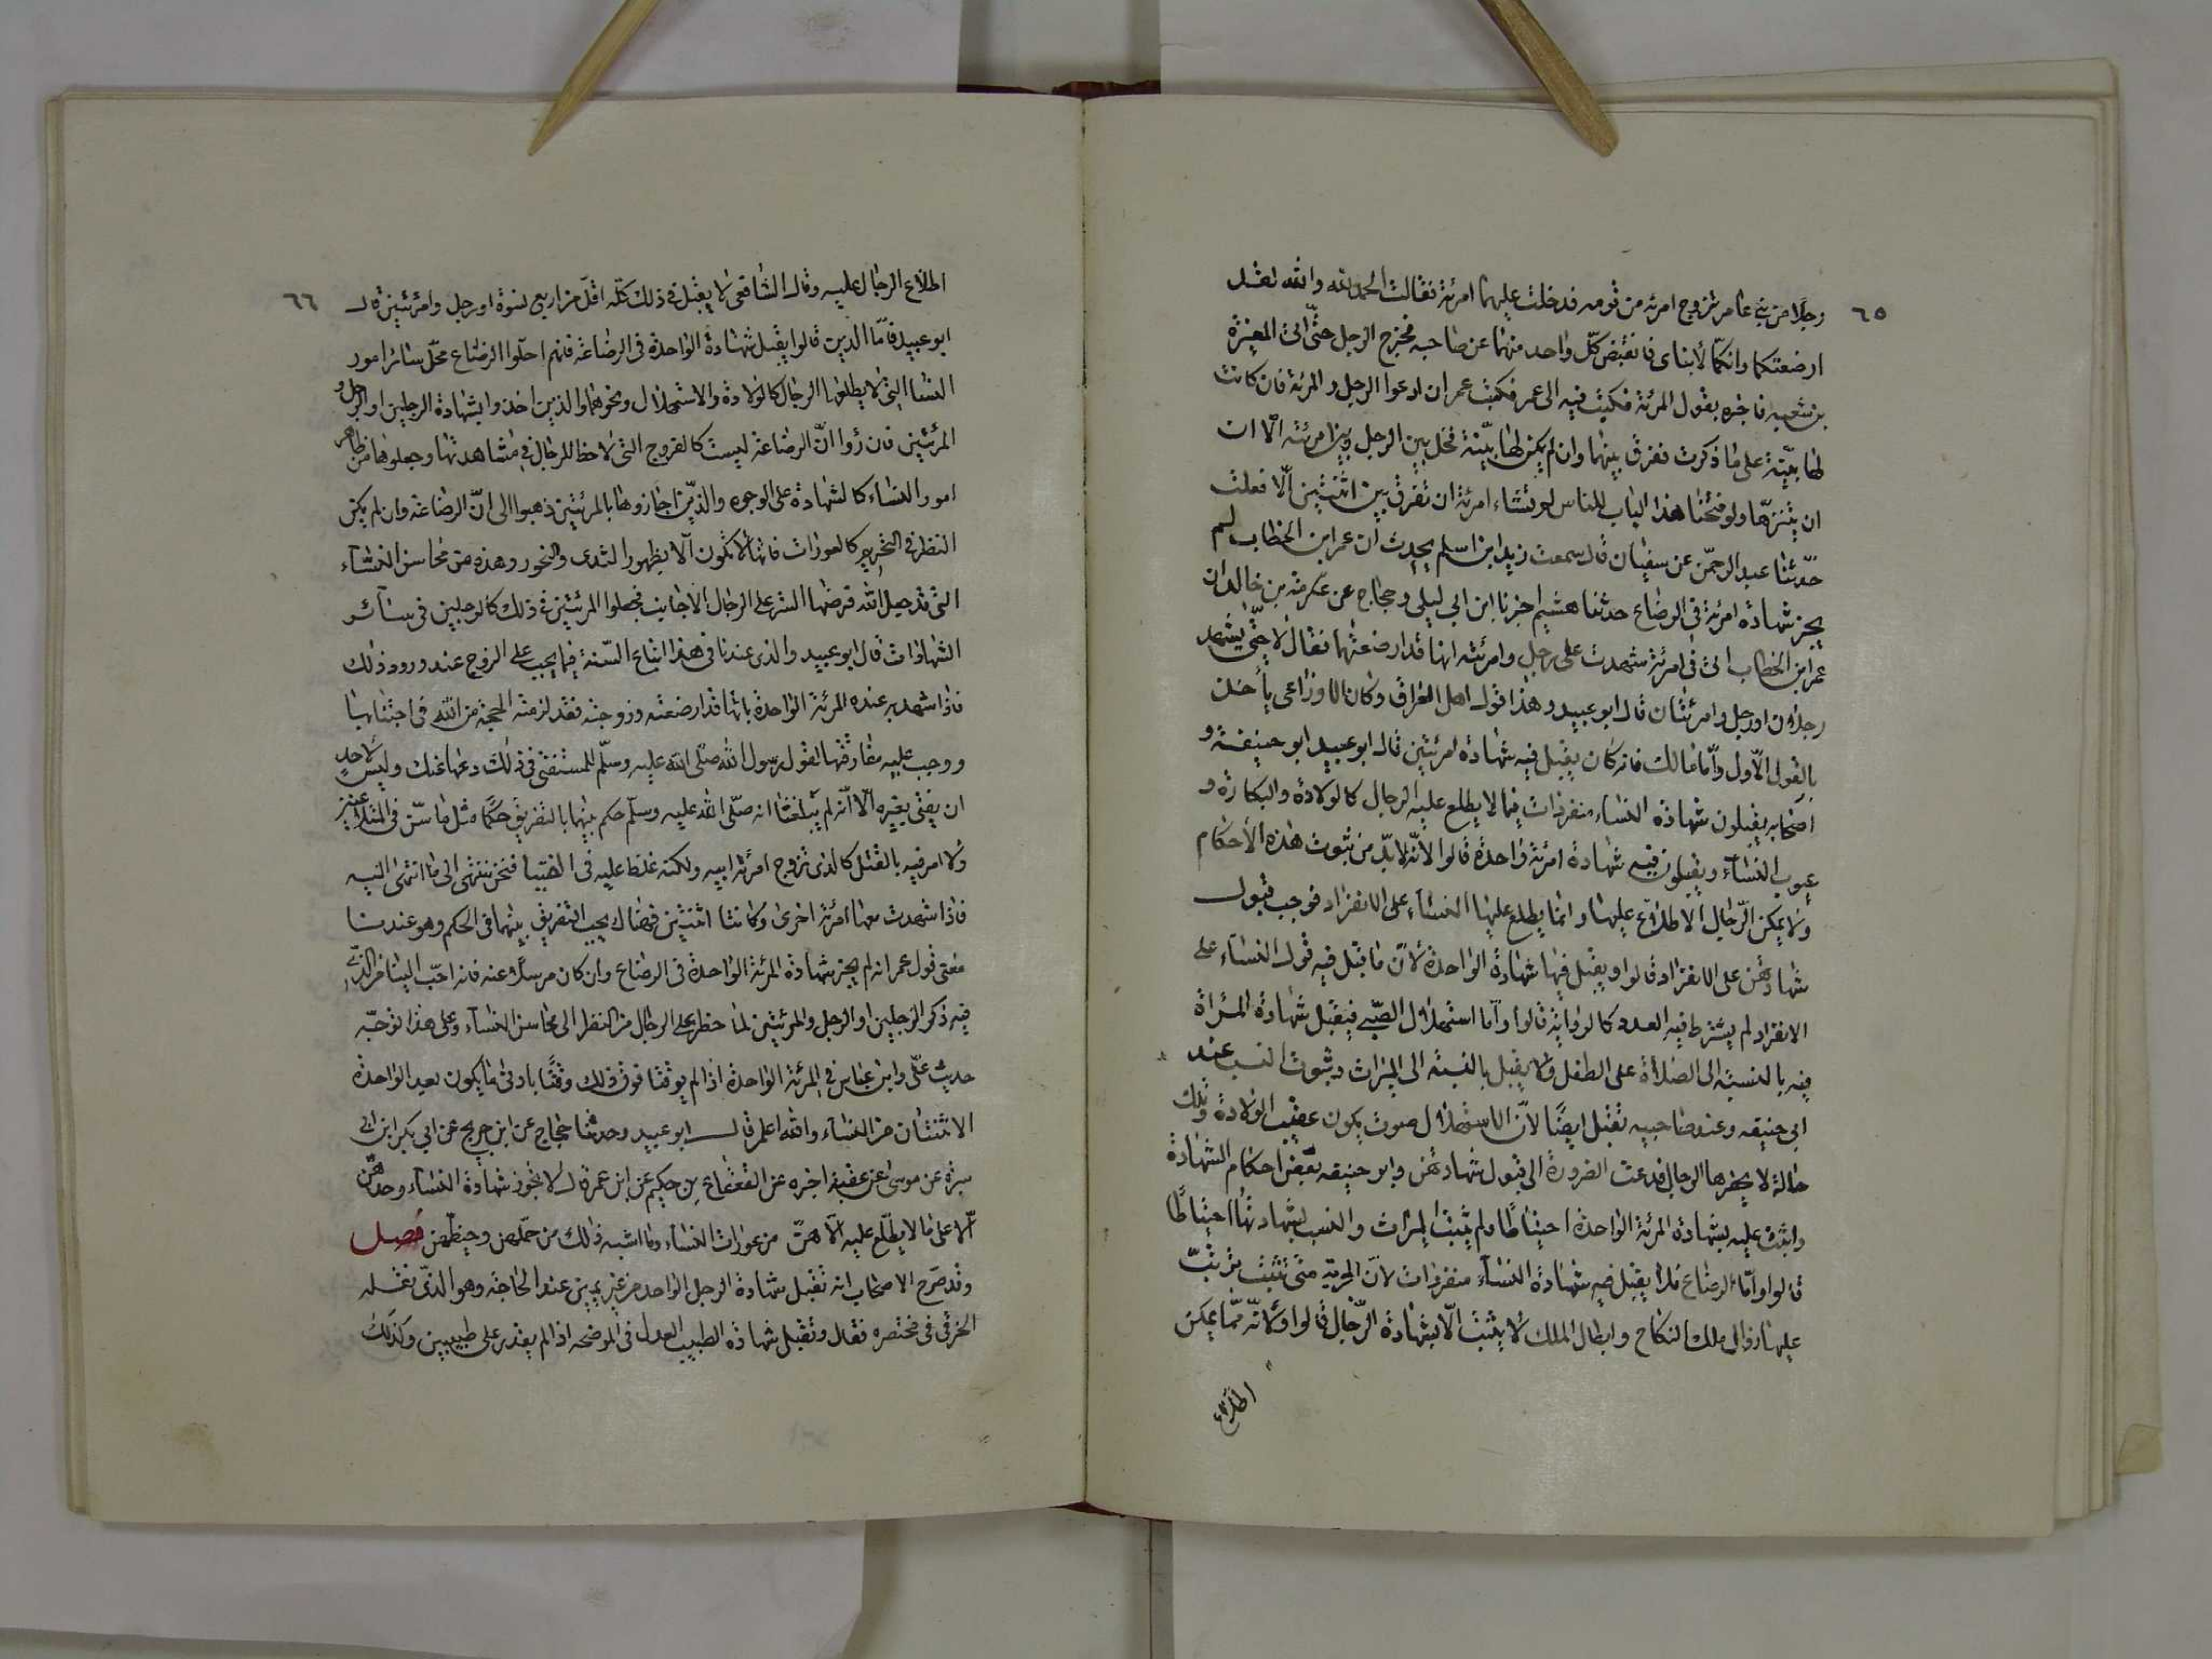 ٦٥
رجلا من بني عامر تزوج امرئة من قومه فدخلت عليهما امرئة فقالت الحمد لله والله لقد
ارضعتكما وانكما لأبناى فانقبض كل واحد منهما عن صاحبه فخرج الرجل حتى اتى المغيرة
بن شعبه فاخبره بقول المرئة فكتب فيه الى عمر فكتب عمر ان ادعوا الرجل والمرئة فان كانت
لها بيّنة على ما ذكرت ففرق بينهما وان لم يكن لها بيّنة فخل بين الرجل وبين امرئته الا ان
ان يتنزّها ولو فتحنا هذا الباب للناس لم تشاء امرئة ان تفرق بين اثنين الّا فعلت
حدّثنا عبد الرحمن عن سفيان قال سمعت زيد ابن اسلم يحدث ان عمر ابن الخطاب لم
يجز شهادة امرئة في الرضاع حدثنا هشيم اخبرنا ابن ابي ليلى وحجاج عن عكرمة بن خالد ان
عمر ابن الخطاب اتى في امرئة شهدت على رجل وامرئته انها قد ارضعتهما فقال لا حتّى يشهد
رجلان او رجل وامرئتان قال ابو عبيد وهذا قول اهل العراق وكان الاوزاعى يأخذ
بالقول الاّول وأمّا مالك فانه كان يقبل فيه شهادة امرئتين قال ابو عبيد ابو حنيفة و
اصحابه يقبلون شهادة النساء منفردات فيما لا يطلع عليه الرجال كالولادة والبكارة و
عيوب النسآء ويقبلون فيه شهادة امرئة واحدة قالوا لأنّه لابدّ من ثبوت هذه الأحكام
ولا يمكن الرّجال الاطلاع عليها وانما يطلع عليها النساء على الانفراد فوجب قبول
شهادتهن على الانفراد قالوا ويقبل فيها شهادة الواحدة لانّ ما قبل فيه قول النساء على
الانفراد لم يشترط فيه العدد كالرواية قالوا وأما استهلال الصّبي فيقبل شهادة المرأة
فيه بالنسبة الى الصلاة على الطفل ولا يقبل بالنسبة الى الميراث وثبوت النسب عند
ابي حنيفه وعند صاحبيه تقبل ايضًا لأنّ الاستهلال صوت يكون عقيب الولادة وتلك
حالة لا يحضرها الرجال فدعت الضرورة الى قبول شهادتهن وابو حنيفه بعض احكام الشهادة
واثبت عليه بشهادة المرئة الواحدة احتياطًا ولم يثبت الميراث والنسب بشهادتها احتياطًا
قالوا وأمّا الرضاع فلا يقبل فيه شهادة النسآء منفردات لأنّ الحرمة متى تثبت ترتّب
عليها زوال ملك النكاح وابطال الملك لا يثبت الّا بشهادة الرّجال قالوا ولأنّه ممّا يمكن
اطلاع
٦٦
اطلاع الرجال عليه وقال الشافعى لا يقبل في ذلك كلّه اقلّ من اربع نسوة او رجل وامرئتين قال
ابو عبيد فأمّا الذين قالوا يقبل شهادة الواحدة في الرضاعة فانهم احلّوا الرضاع محلّ سائر امور
النسا التى لا يطلعها الرجال كالولادة والاستهلال ونحوهما والذين اخذوا بشهادة الرجلين او الرجل و
المرئتين فان رؤا انّ الرضاعة ليست كالفروج التى لا حظا للرجال في مشاهدتها وجعلوها من ظاهر
امور النساء كالشهادة على الوجوه والذّين اجازوها بالمرئتين ذهبوا الى انّ الرضاعة وان لم يكن
النظر في التحريم كالعورات فانها لا تكون الا بظهور الثدى والنحور وهذه من محاسن النسآء
التى قد جعل الله فرضها الستر على الرجال الأجانب فجعلوا المرئتين في ذلك كالرجلين في سائر
الشهادات قال ابو عبيد والذى عندنا في هذا اتباع السّنة فيما يجب على الزوج عند ورود ذلك
فاذا شهد به عنده المرئة الواحدة بانها قد ارضعته وزوجته فقد لزمته الحجة من الله في اجتنابها
ووجب عليه مفارقتها لقول رسول الله صلى الله عليه وسلّم للمستفتى في ذلك دعها عنك وليس لأحدٍ
ان يفتى بغيره الّا أنّه لم يبلغنا انه صلّى الله عليه وسلّم حكم بينهما بالتفريق حكمًا مثل ما سنّ في المتلاعنين
ولا امر فيه بالقتل كالذى تزوج امرئة ابيه ولكنه غلظ عليه في الفتيا فنحن ننتهى الى ما انتهى اليه
فاذا شهدت معها امرئة اخرى وكانتا اثنتين فهناك يجب التفريق بينهما في الحكم وهو عندنا
معنى قول عمر انه لم يجز شهادة المرئة الواحدة في الرضاع وان كان مرسلًا عنه فانه احبّ الينا من الّذي
فيه ذكر الرّجلين او الرجل والمرئتين لما حظر على الرجال من النظر الى محاسن النسآء وعلى هذا توجّه
حديث علّى وابن عباس في المرئة الواحدة اذا لم يوقتا فوق ذلك وقتًا بادنى ما يكون بعد الواحدة
الاثنتان من النساء والله اعلم قال ابو عبيد وحدثنا حجاج عن ابن جريج عن ابي بكر ابن ابي
سبرة عن موسى بن عقبة اخبره عن القعقاع بن حكيم عن ابن عمر قال لا تجوز شهادة النساء وحدهنّ
الّا على ما لا يطّلع عليه الّا هنّ من عورات النساء وما اشبه ذلك من حملهن وحيضهن فصل
وقد صرح الاصحاب انه تقبل شهادة الرجل الواحد من غير يمين عند الحاجة وهو الّذى نقله
الخرقى في مختصره فقال وتقبل شهادة الطبيب العدل في الموضحه اذا لم يقدر على طبيبين وكذلك